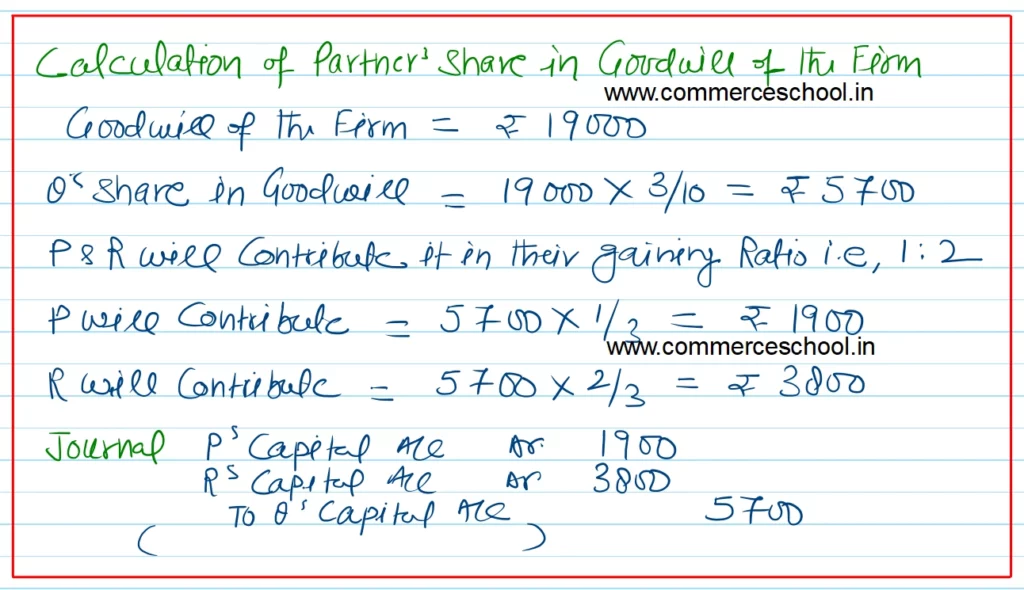 Calculation of Partner's Share in Goodwill of the Firm
www.commerceschool.in
Goodwill of the Firm = ₹ 19000
Q's Share in Goodwill = 19000 × 3/10 = ₹ 5700
P & R will Contribute it in their gaining Ratio i.e, 1:2
P will Contribute = 5700 × 1/3 = ₹ 1900
www.commerceschool.in
R will Contribute = 5700 × 2/3 = ₹ 3800
Journal P's Capital A/c Dr. 1900
R's Capital A/c Dr 3800
To Q's Capital A/c 5700
( )